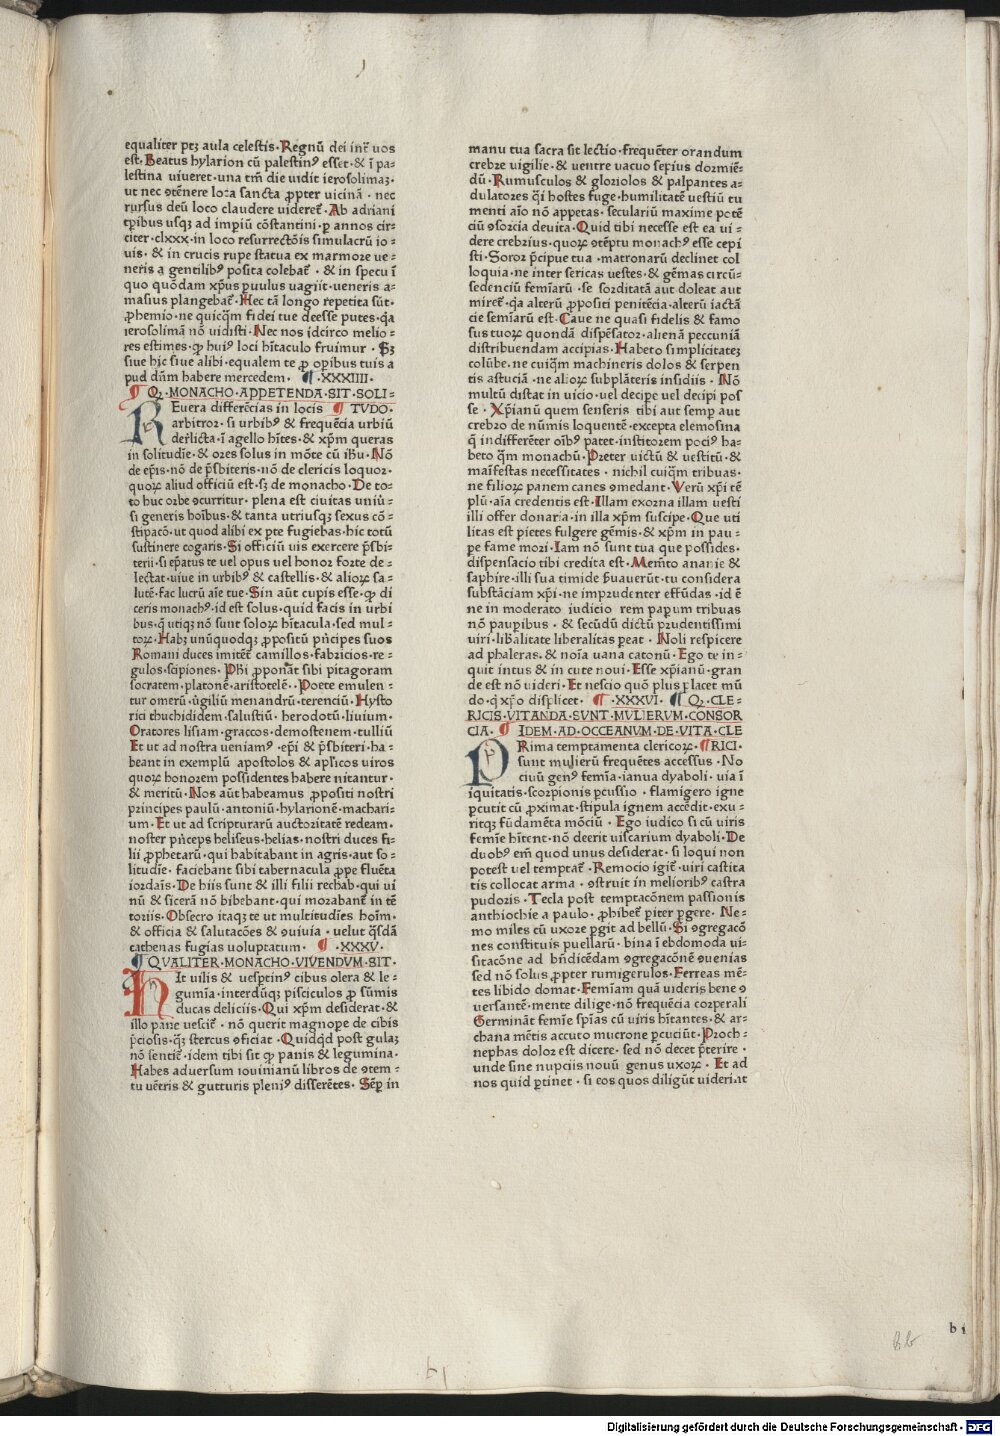 equaliter ptꝫ aula celestis. Regnū dei int̄ uos
est. Beatus hylarion cū palestinꝰ esset. & ī pa-
lestina uiueret. una tm̄ die uidit ierosolimaꝫ.
ut nec ꝯtēnere loca sancta ꝓpter uicinā. nec
rursus deū loco claudere uideret̄. Ab adriani
tꝑibus usqꝫ ad impiū cōstantini. ꝑ annos cir-
citer. clxxx. in loco resurrectōis simulacrū io-
uis. & in crucis rupe statua ex marmore ue-
neris a gentilibꝰ posita colebat̄. & in specu ī
quo quōdam xp̄us ꝑuulus uagiit. ueneris a-
masius plangebat̄. Hec tā longo repetita sūt.
ꝓhemio. ne quicq̄m fidei tue deesse putes. q̄a
ierosolimā nō uidisti. Nec nos idcirco melio-
res estimes. ꝙ huiꝰ loci hītaculo fruimur. Sꝫ
siue hic siue alibi. equalem te ꝓ oꝑibus tuis a
pud dn̄m habere mercedem. ¶. XXXIIII.
¶ Qꝫ. MONACHO. APPETENDA. SIT. SOLI-
REuera differēcias in locis ¶ TVDO.
arbitror. si urbibꝰ & frequēcia urbiū
derlicta. ī agello hītes. & xp̄m queras
in solitudīe. & ores solus in mōte cū ihū. Nō
de ep̄is. nō de p̄sbiteris. nō de clericis loquor.
quoꝝ aliud officiū est. sꝫ de monacho. De to-
to huc orbe ꝯcurritur. plena est ciuitas uniū-
si generis hoībus. & tanta utriusqꝫ sexus cō-
stipacō. ut quod alibi ex pte fugiebas. hic totū
sustinere cogaris. Si officiū uis exercere p̄sbi-
terii. si ep̄atus te uel opus uel honor forte de-
lectat. uiue in urbibꝰ & castellis. & alioꝝ sa-
lutē. fac lucrū aīe tue. Sin aūt cupis esse. ꝙ di
ceris monachꝰ. id est solus. quid facis in urbi
bus. q̄ utiqꝫ nō sunt soloꝝ hītacula. sed mul-
toꝝ. Habꝫ unūquodqꝫ ꝓpositū pn̄cipes suos
Romani duces imitēt̄ camillos. fabricios. re-
gulos. scipiones. Phī ꝓponāt sibi pitagoram
socratem. platonē. aristotelē.. Poete emulen-
tur omerū. ūgiliū menandrū. terenciū. Hysto
rici thuchididem. salustiū. herodotū. liuium.
Oratores lisiam. graccos. demostenem. tulliū
Et ut ad nostra ueniamꝰ. ep̄i & p̄sbiteri. ha-
beant in exemplū apostolos & ap̄licos uiros
quoꝝ honorem possidentes habere nitantur.
& meritū. Nos aūt habeamus ꝓpositi nostri
principes paulū. antoniū. hylarionē. machari-
um. Et ut ad scripturarū auctoritatē redeam.
noster pn̄ceps heliseus. helias. nostri duces fi-
lii ꝓphetarū. qui habitabant in agris. aut so-
litudīe. faciebant sibi tabernacula ꝓpe fluēta
iordaīs. De hiis sunt & illi filii rechab. qui ui
nū & sicerā nō bibebant. qui morabant̄ in tē
toriis. Obsecro itaqꝫ te ut multitudīes hoīm.
& officia & salutacōes & ꝯuiuia. uelut q̄sdā
cathenas fugias uoluptatum. ¶. XXXV.
¶ QVALITER. MONACHO. VIVENDVM. SIT.
HIt uilis & uesptinꝰ cibus olera & le-
gumīa. interdūqꝫ pisciculos ꝓ sūmis
ducas deliciis. Qui xp̄m desiderat. &
illo pane uescit̄. nō querit magnope de cibis
p̄ciosis. q̄ꝫ stercus ꝯficiat. Quidq̄d post gulaꝫ
nō sentit̄. idem tibi sit ꝙ panis & legumina.
Habes aduersum iouinianū libros de ꝯtem-
tu uētris & gutturis pleniꝰ disserētes. Sēꝑ in
manu tua sacra sit lectio. frequēter orandum
crebre uigilie. & uentre uacuo sepius dormiē-
dū. Rumusculos & gloriolos & palpantes a-
dulatores q̄i hostes fuge. humilitatē uestiū tu
menti aīo nō appetas. seculariū maxime potē
ciū ꝯsorcia deuita. Quid tibi necesse est ea ui-
dere crebrius. quoꝝ ꝯtēptu monachꝰ esse cepi
sti. Soror p̄cipue tua. matronarū declinet col
loquia. ne inter sericas uestes. & gēmas circū-
sedenciū femīarū. se sorditatā aut doleat aut
miret̄. q̄a alterū ꝓpositi penitēcia. alterū iactā
cie semīarū est. Caue ne quasi fidelis & famo
sus tuoꝝ quondā dispēsator. alienā peccuniā
distribuendam accipias. Habeto simplicitateꝫ
colūbe. ne cuiq̄m machineris dolos & serpen
tis astuciā. ne alioꝝ subplāteris insidiis. Nō
multū distat in uicio. uel decipe uel decipi pos
se. Xp̄ianū quem senseris tibi aut semꝑ aut
crebro de nūmis loquentē. excepta elemosina
q̄ indifferēter oībꝰ patet. institorem pociꝰ ha-
beto q̄m monachū. Preter uictū & uestitū. &
maīfestas necessitates. nichil cuiq̄m tribuas.
ne filioꝝ panem canes ꝯmedant. Verū xp̄i tē
plū. aīa credentis est. Illam exorna illam uesti
illi offer donaria. in illa xp̄m suscipe. Que uti
litas est pietes fulgere gēmis. & xp̄m in pau-
pe fame mori. Iam nō sunt tua que possides.
dispensacio tibi credita est. Memēto ananie &
saphire. illi sua timide p̄uauerūt. tu considera
substāciam xp̄i. ne imprudenter effūdas. id ē
ne in moderato iudicio rem paꝑum tribuas
nō pauꝑibus. & secūdū dictū prudentissimi
uiri. libalitate liberalitas peat. Noli respicere
ad phaleras. & noīa uana catonū. Ego te in-
quit intus & in cute noui. Esse xp̄ianū. gran
de est nō uideri. Et nescio quō plus placet mū
do. q̄ xp̄o displicet. ¶. XXXVI. ¶ Qꝫ. CLE-
RICIS. VITANDA. SVNT. MVLIERVM. CONSOR
CIA. ¶ IDEM. AD. OCCEANVM. DE. VITA. CLE
PRima temptamenta clericoꝝ. ¶RICI.
sunt mulierū frequētes accessus. No
ciuū genꝰ femīa. ianua dyaboli. uia ī
iquitatis. scorpionis ꝑcussio. flamigero igne
ꝑcutit cū ꝓximat. stipula ignem accēdit. exu-
ritqꝫ fūdamēta mōciū. Ego iudico si cū uiris
femīe hītent. nō deerit uiscarium dyaboli. De
duobꝰ em̄ quod unus desiderat. si loqui non
potest uel temptat̄. Remocio igit̄. uiri castita
tis collocat arma. ꝯstruit in melioribꝰ castra
pudoris. Tecla post temptacōnem passionis
anthiochie a paulo. ꝓhibet̄ ꝑiter ꝑgere. Ne-
mo miles cū uxore ꝑgit ad bellū. Si ꝯgregacō
nes constituis puellarū. bina ī ebdomoda ui-
sitacōne ad bn̄dicēdam ꝯgregacōnē ꝯuenias
sed nō solus ꝓpter rumigerulos. Ferreas mē-
tes libido domat. Femīam quā uideris bene ꝯ
uersantē. mente dilige. nō frequēcia corperali
Germināt femīe spīas cū uiris hītantes. & ar-
chana mētis accuto mucrone ꝑcuciūt. Proch-
nephas dolor est dicere. sed nō decet p̄terire.
unde sine nupciis nouū genus uxoꝝ. Et ad
nos quid ꝑtinet. si eos quos diligūt uiderint
b 1
Bb
b1
Digitalisierung gefördert durch die Deutsche Forschungsgemeinschaft - DFG